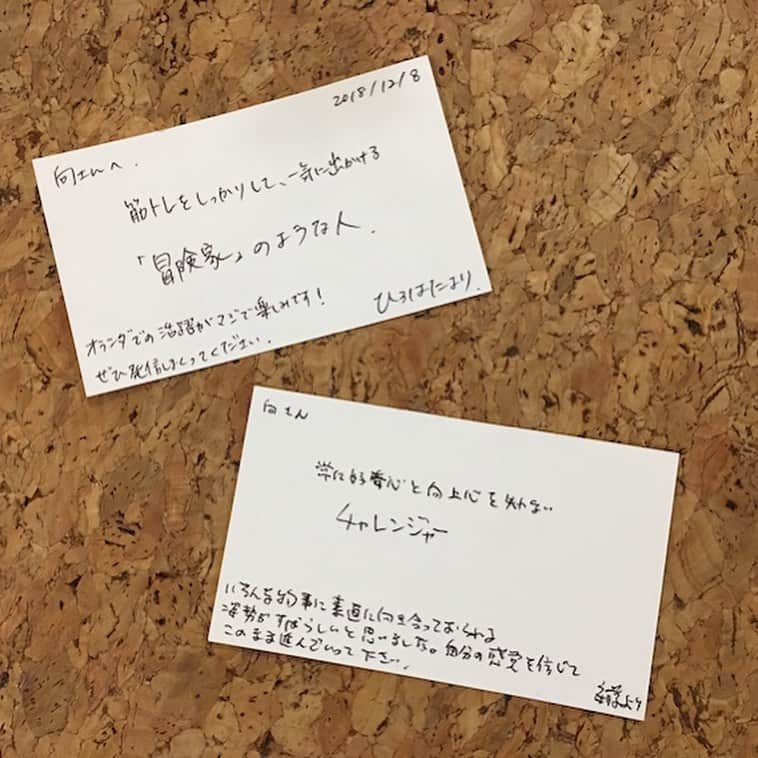 2018/12/8
向さんへ.
筋トレをしっかりして、一気に出かける
「冒険家」のような人.
オランダでの活躍がマジで楽しみです!
ぜひ発信しまくってください.
ひろはたまり.
向さん
常に好奇心と向上心を失わない
チャレンジャー
いろんな物事に素直に向き合っておられる
姿勢がすばらしいと思いました。自分の感覚を信じて
このまま進んでいって下さい.
より